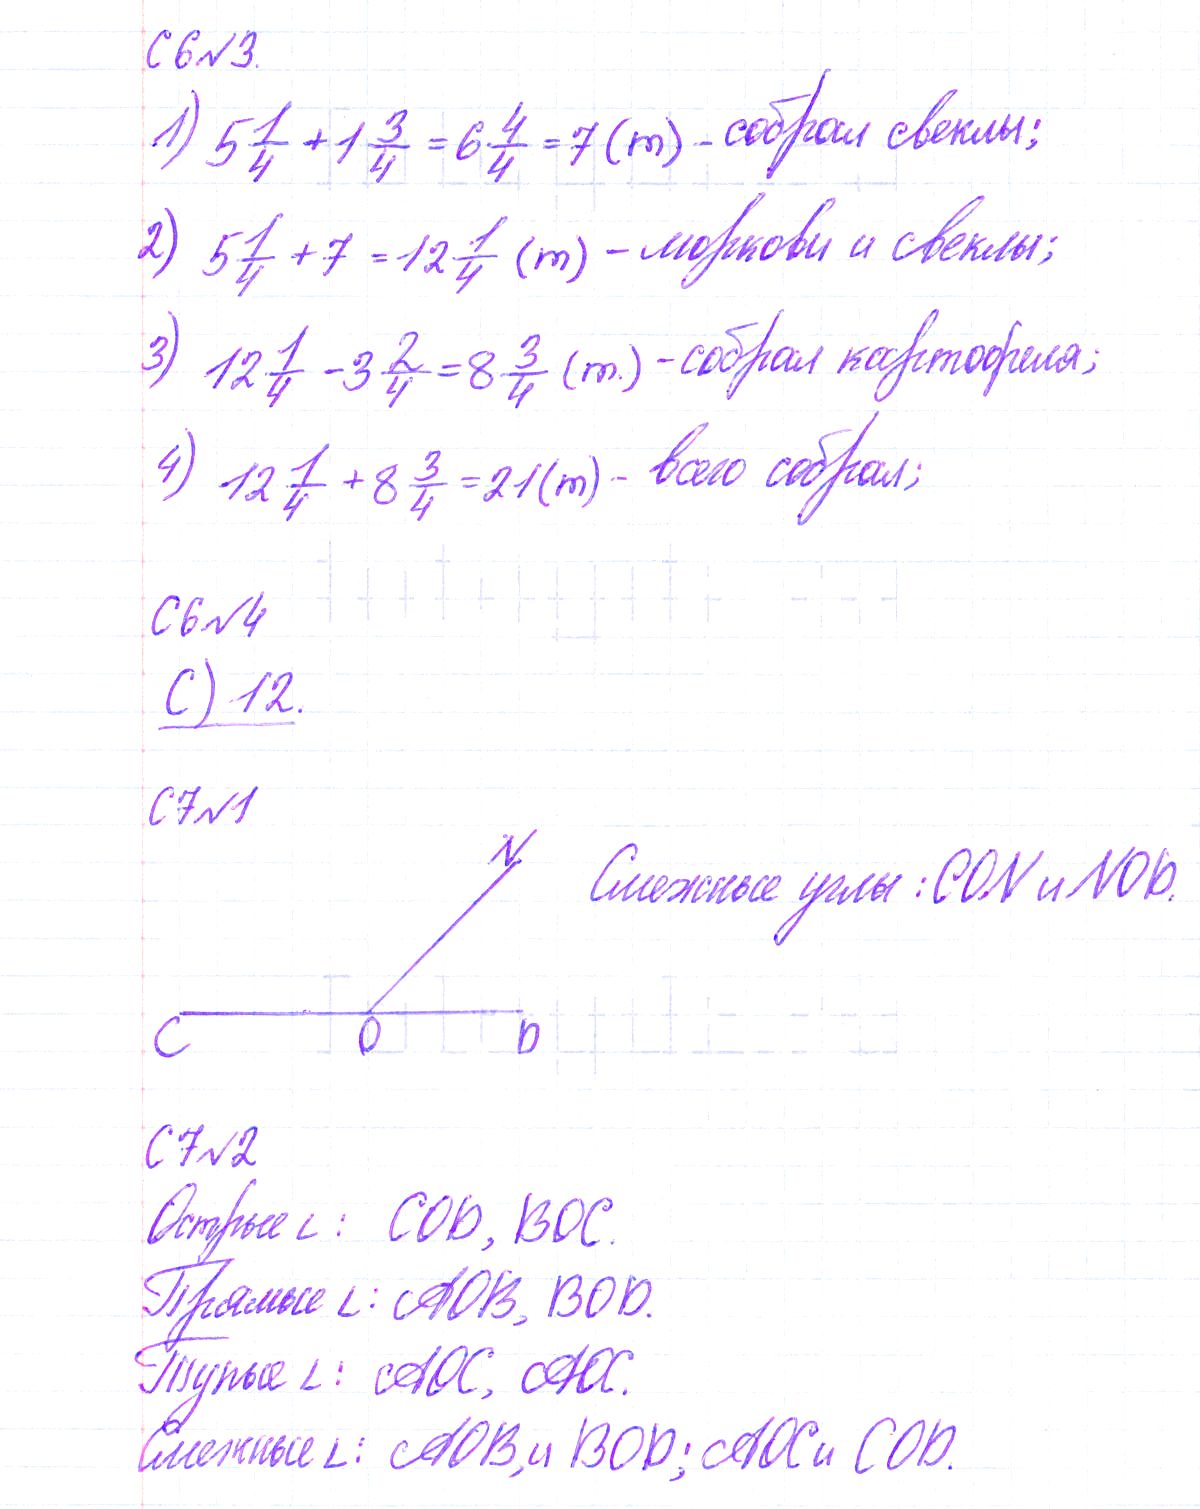 С6№3.
1) 5 1/4 + 1 3/4 = 6 4/4 = 7 (т) - собрал свеклы;
2) 5 1/4 + 7 = 12 1/4 (т) - моркови и свеклы;
3) 12 1/4 - 3 2/4 = 8 3/4 (т.) - собрал картофеля;
4) 12 1/4 + 8 3/4 = 21 (т) - всего собрал;
С6№4
С) 12.
С7№1
N
Смежные углы: CON и NOD.
C O D
С7№2
Острые ∠: COD, BOC.
Прямые ∠: AOB, BOD.
Тупые ∠: AOC, AOC.
Смежные ∠: AOB, и BOD; AOC и COD.